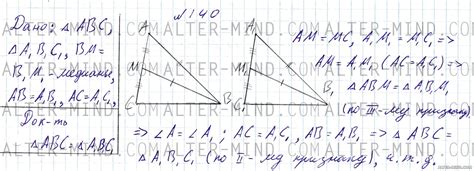 №140
Дано: △ABC,
△A₁B₁C₁, BM=
B₁M₁ - медианы,
AB=A₁B₁, AC=A₁C₁
Док-ть
△ABC=△A₁B₁C₁
A
M
C
B
A
M
C
B₁
AM=MC, A₁M₁=M₁C₁ =>
AM=A₁M₁ (AC=A₁C₁) =>
△ABM=△A₁B₁M₁
(по III-му признаку)
=> ∠A=∠A₁; AC=A₁C₁, AB=A₁B₁ => △ABC=
△A₁B₁C₁ (по II-му признаку), ч.т.д.
COMALTER-MIND.COMALTER-MIND.COMALTER-MIND.COM